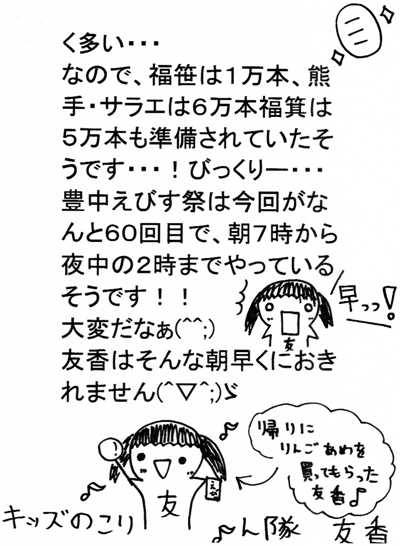 く多い・・・
なので、福笹は１万本、熊
手・サラエは６万本福箕は
５万本も準備されていたそ
うです・・・！びっくりー・・・
豊中えびす祭は今回がな
んと６０回目で、朝７時から
夜中の２時までやっている
そうです！！
大変だなぁ(^^;)
友香はそんな朝早くにおき
れません(^▽^;)ゞ
早っっ!
友
帰りに
りんごあめを
買ってもらった
友香♪
友
キッズのこり
ん隊
友香